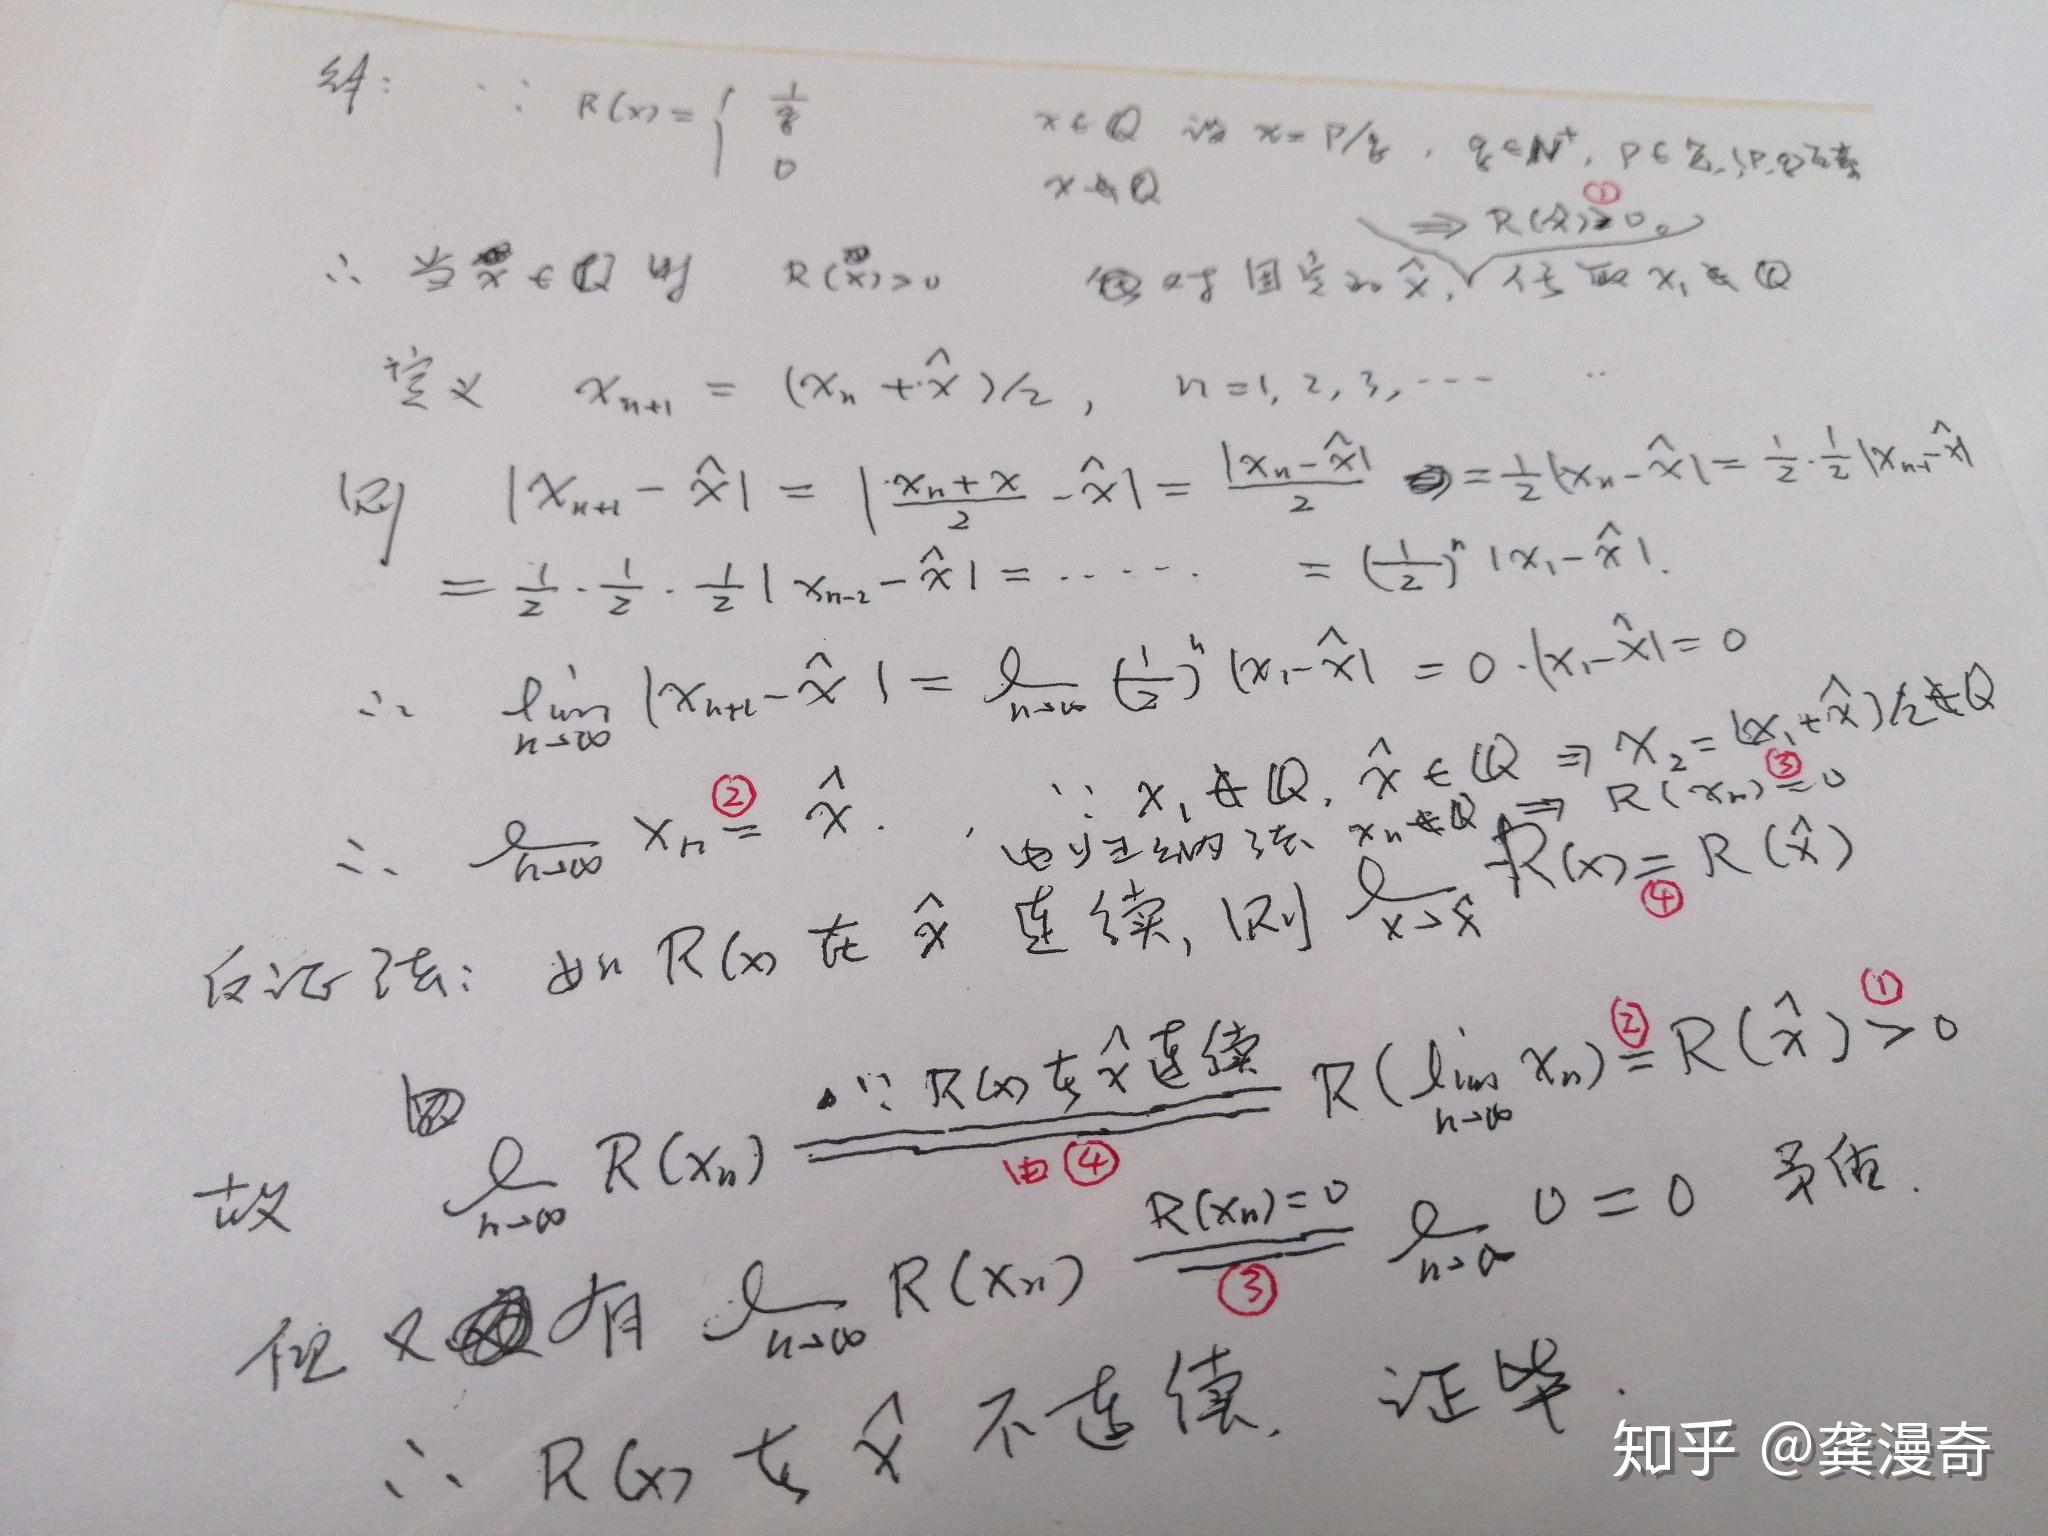 解: ∵ R(x) = { 1/q x∈Q 设 x = P/q, q∈N⁺, P∈Z, P,q互素
0 x∉Q
⇒ R(x̂) ①> 0。
∴ 当 x∈Q 时 R(x)>0 对于固定的 x̂, 任取 x₁∉Q
定义 xₙ₊₁ = (xₙ + x̂)/2, n=1, 2, 3, ……
则 |xₙ₊₁ - x̂| = |(xₙ + x)/2 - x̂| = |xₙ - x̂|/2 = 1/2 |xₙ - x̂| = 1/2 · 1/2 |xₙ₋₁ - x̂|
= 1/2 · 1/2 · 1/2 | xₙ₋₂ - x̂| = …… = (1/2)ⁿ |x₁ - x̂|.
∴ lim n→∞ |xₙ₊₁ - x̂| = lim n→∞ (1/2)ⁿ |x₁ - x̂| = 0 · |x₁ - x̂| = 0
∴ lim n→∞ xₙ ②= x̂. ∵ x₁∉Q, x̂∈Q ⇒ x₂ = (x₁ + x̂)/2 ∉Q
由归纳法 xₙ∉Q ⇒ R(xₙ) ③= 0
反证法: 如 R(x) 在 x̂ 连续, 则 lim x→x̂ R(x) =④ R(x̂)
故 lim n→∞ R(xₙ) ∵ R(x) 在 x̂ 连续 由④ R(lim n→∞ xₙ) ②= R(x̂) ①> 0
但又有 lim n→∞ R(xₙ) R(xₙ)=0 ③ lim n→∞ 0 = 0 矛盾.
∴ R(x) 在 x̂ 不连续. 证毕.
知乎 @龚漫奇